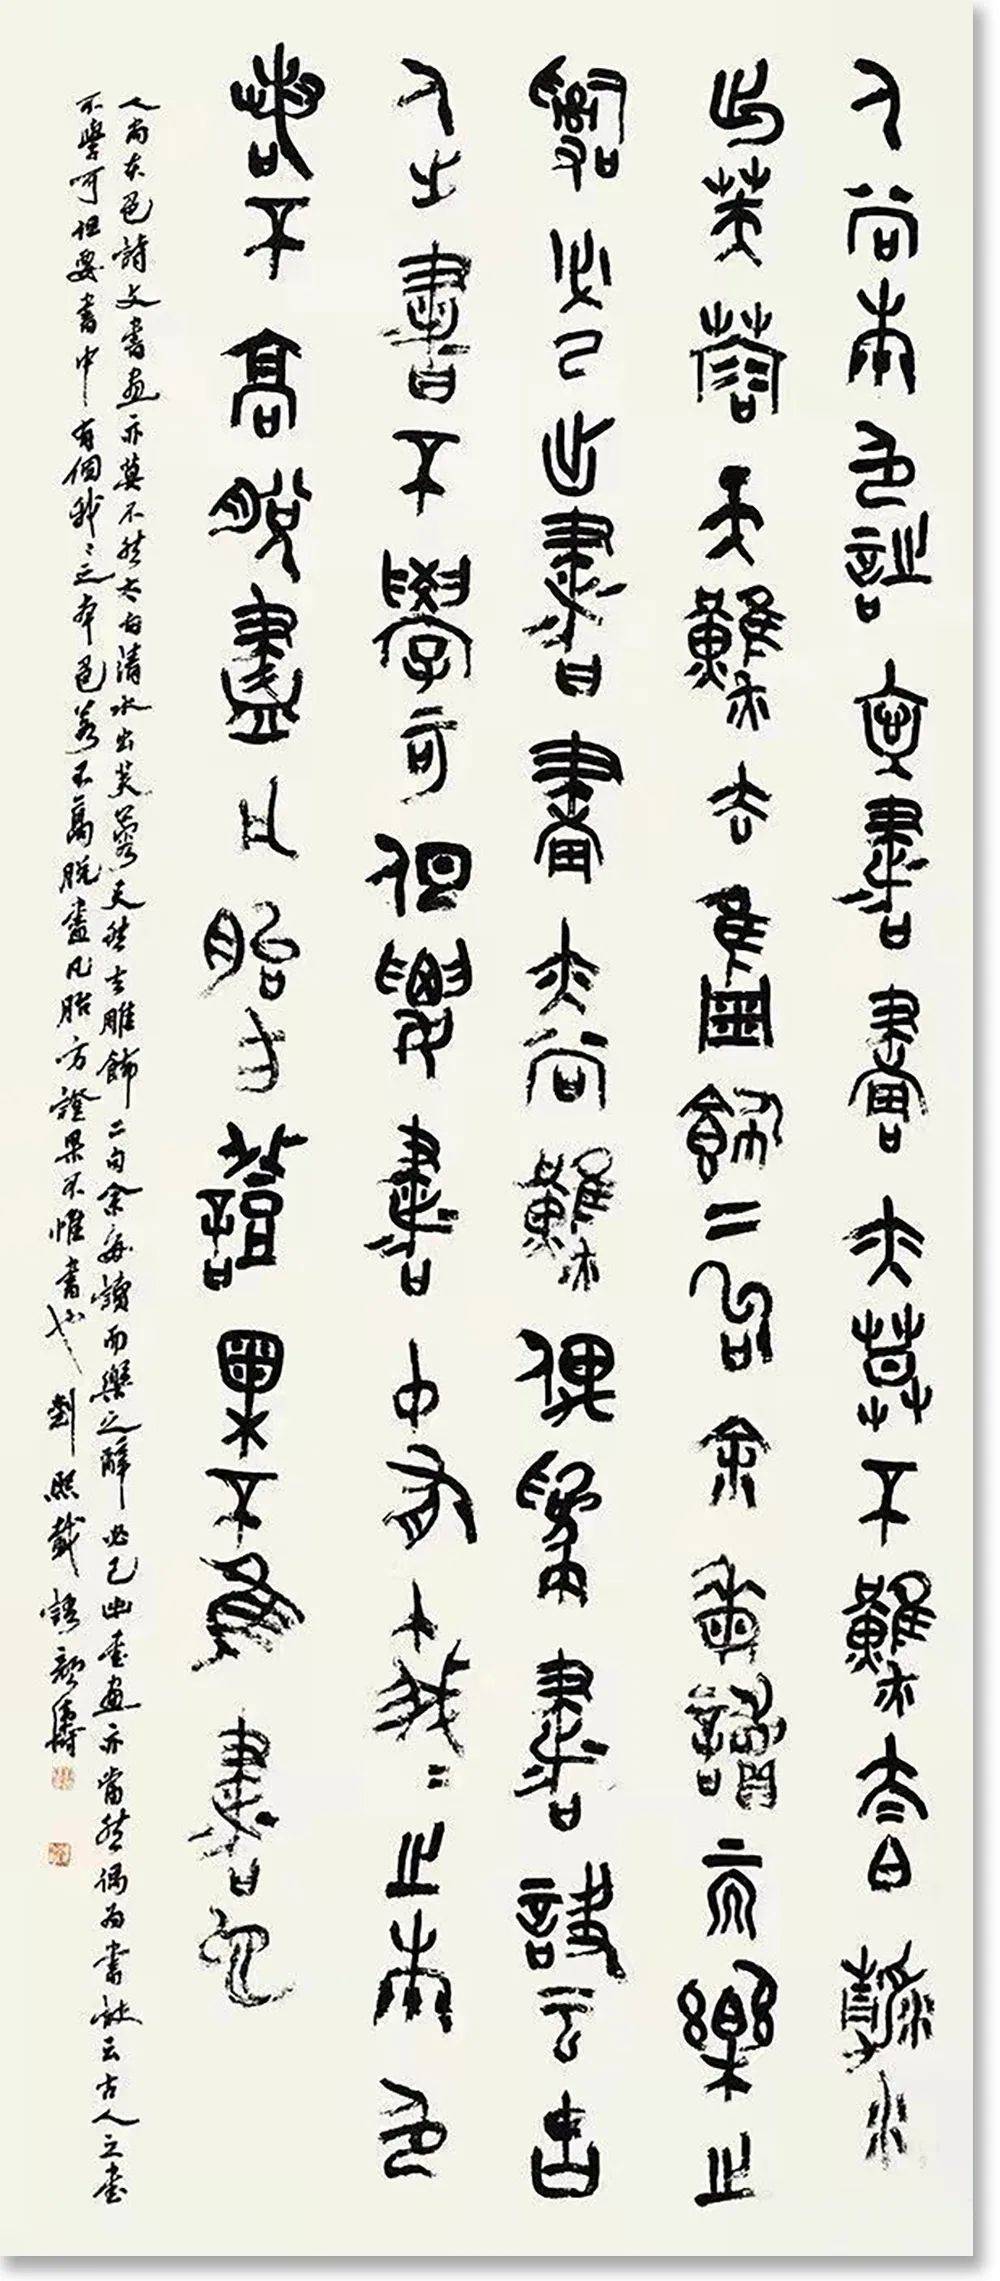 人尚本色詩文書畫亦莫不然太白清水
出芙蓉天然去雕飾二句余每讀而樂之
辭必己出書畫亦當然偶為書訣云古
人之書不學可但要書中有个我〻之本色
若不高脫盡凡胎方證果不惟書也
人尚本色詩文書畫亦莫不然太白清水出芙蓉天然去雕飾二句余每讀而樂之辭必己出書畫亦當然偶為書訣云古人之書
不學可但要書中有個我〻之本色若不高脫盡凡胎方證果不惟書也 劉熙載語 顏濤